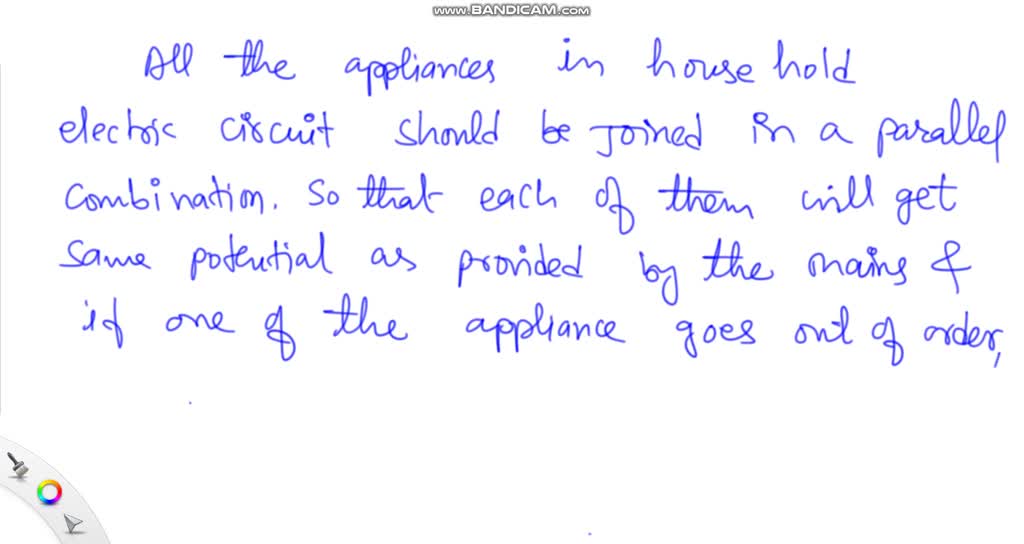 www.BANDICAM.com
All the appliances in house hold
electric circuit should be Joined in a parallel
Combination. So that each of them will get
same potential as provided by the mains &
if one of the appliance goes out of order,